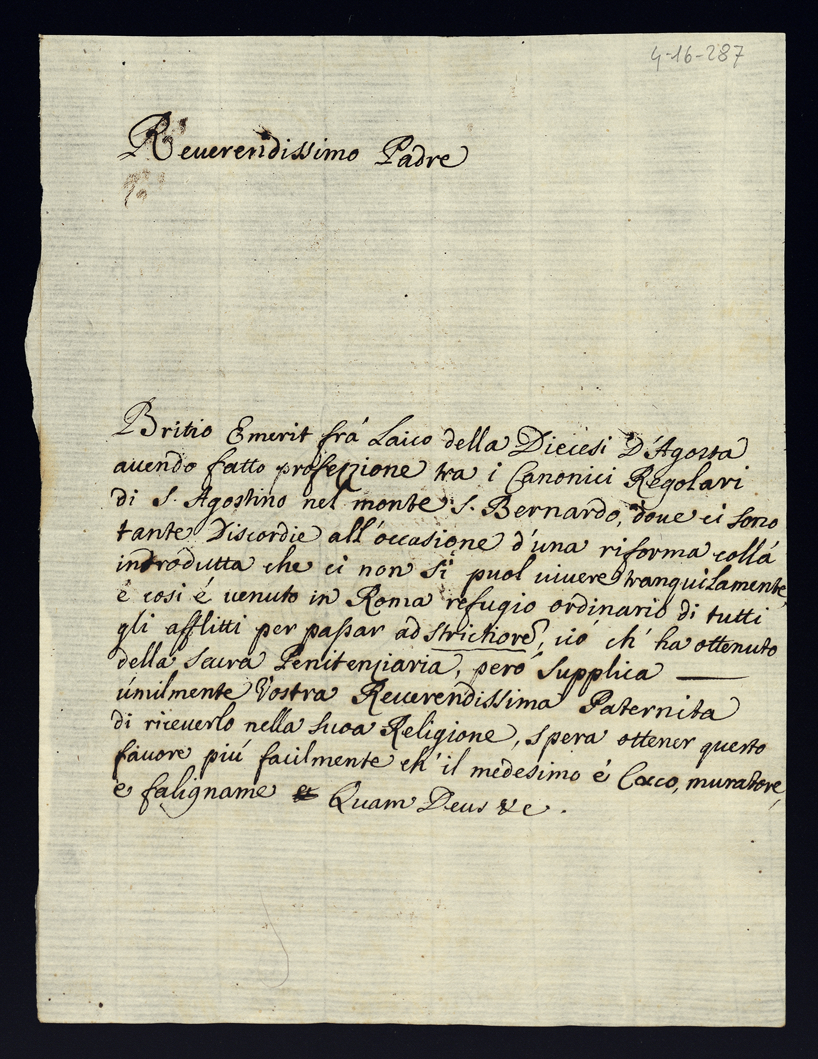 4-16-287
Reuerendissimo Padre
Britio Emerit frá Laico della Diecesi D'Agosta
auendo fatto professione tra i Canonici Regolari
di S. Agostino nel monte S. Bernardo, doue ci sono
tante Discordie all'occasione d'una riforma collá
introdutta che ci non si puol uiuere tranquilamente,
e cosi é uenuto in Roma refugio ordinario di tutti
gli afflitti per passar ad strictiorē, ció ch'ha ottenuto
della Sacra Penitenziaria, peró Supplica
úmilmente Vostra Reuerendissima Paternita
di riceuerlo nella suoa Religione, spera ottener questo
fauore piú facilmente ch'il medesimo é Coco, muratore,
e faligname Quam Deus &c.